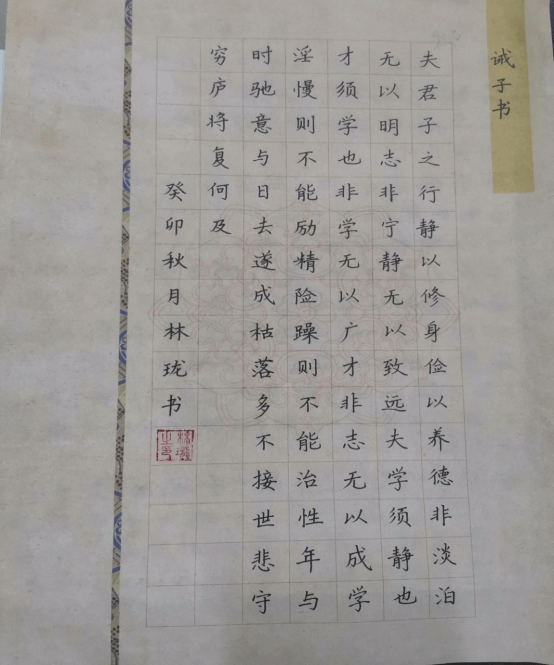 诫子书
夫君子之行静以修身俭以养德非淡泊
无以明志非宁静无以致远夫学须静也
才须学也非学无以广才非志无以成学
淫慢则不能励精险躁则不能治性年与
时驰意与日去遂成枯落多不接世悲守
穷庐将复何及
癸卯秋月林珑书
林珑之印